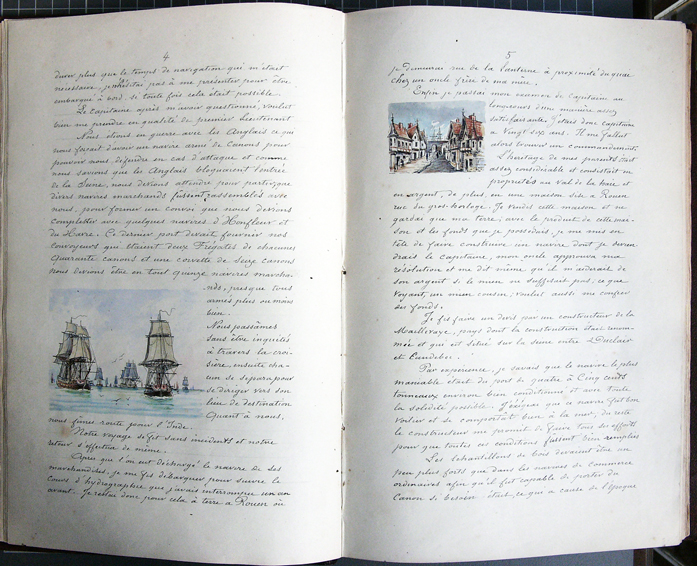 4
durer plus que le temps de navigation qui m'était
nécessaire, je n'hésitai pas à me présenter pour être
embarqué à bord, si toute fois cela était possible.
Le Capitaine après m'avoir questionné, voulut
bien me prendre en qualité de premier Lieutenant
Nous étions en guerre avec les Anglais ce qui
nous forçait d'avoir un navire armé de Canons pour
pouvoir nous défendre en cas d'attaque et comme
nous savions que les Anglais bloquaient l'entrée
de la Seine, nous devions attendre pour partir que
divers navires marchands fussent rassemblés avec
nous, pour former un convoi que nous devions
completter avec quelques navires d'Honfleur et
du Havre. Ce dernier port devait fournir nos
convoyeurs qui étaient deux Frégates de chacunes
quarante canons et une corvette de Seize canons
Nous devions être en tout quinze navires marcha-
nds, presque tous
armés plus ou moins
bien.
Nous passâmes
sans être inquiétés
à travers la croi-
sière, ensuite cha-
cun se sépara pour
se diriger vers son
lieu de destination
Quant à nous,
nous fimes route pour l'Inde.
Notre voyage se fit sans incidents et notre
retour s'effectua de même.
Après que l'on eut déchargé le navire de ses
marchandises, je me fis débarquer pour suivre le
cours d'hydrographie que j'avais interrompu un an
avant. Je restai donc pour cela à terre à Rouen où
5
je demeurai rue de la Lanterne à proximité du quai
chez un oncle frère de ma mère.
Enfin je passai mon examen de capitaine au
longcours d'une manière assez
satisfaisante. J'étais donc capitaine
à vingt six ans. Il me fallut
alors trouver un commandement.
L'héritage de mes parents était
assez considérable et consistait en
propriétés au Val de la haie et
en argent, de plus, en une maison sise à Rouen
rue du gros-horloge. Je vendis cette maison et ne
gardai que ma terre; avec le produit de cette mai-
son et les fonds que je possédais, je me mis en
tête de faire construire un navire dont je devien
drais le capitaine, mon oncle approuva ma
résolution et me dit même qu'il m'aiderait de
son argent si le mien ne suffisait pas; ce que
voyant, un mien cousin, voulut aussi me confier
ses fonds.
Je fis faire un devis par un constructeur de la
Mailleraye, pays dont la construction était renom-
mée et qui est situé sur la Seine entre Duclair
et Caudebec.
Par expérience, je savais que le navire le plus
maniable était du port de quatre à Cinq cents
tonneaux environ bien conditionné et avec toute
la solidité possible. J'exigeai que ce navire fut bon
voilier et se comportat bien à la mer, du reste
le constructeur me promit de faire tous ses efforts
pour que toutes ces conditions fussent bien remplies
Les échantillons de bois devaient être un
peu plus forts que dans les navires de commerce
ordinaires afin qu'il fut capable de porter du
Canon si besoin était, ce qui à cause de l'époque